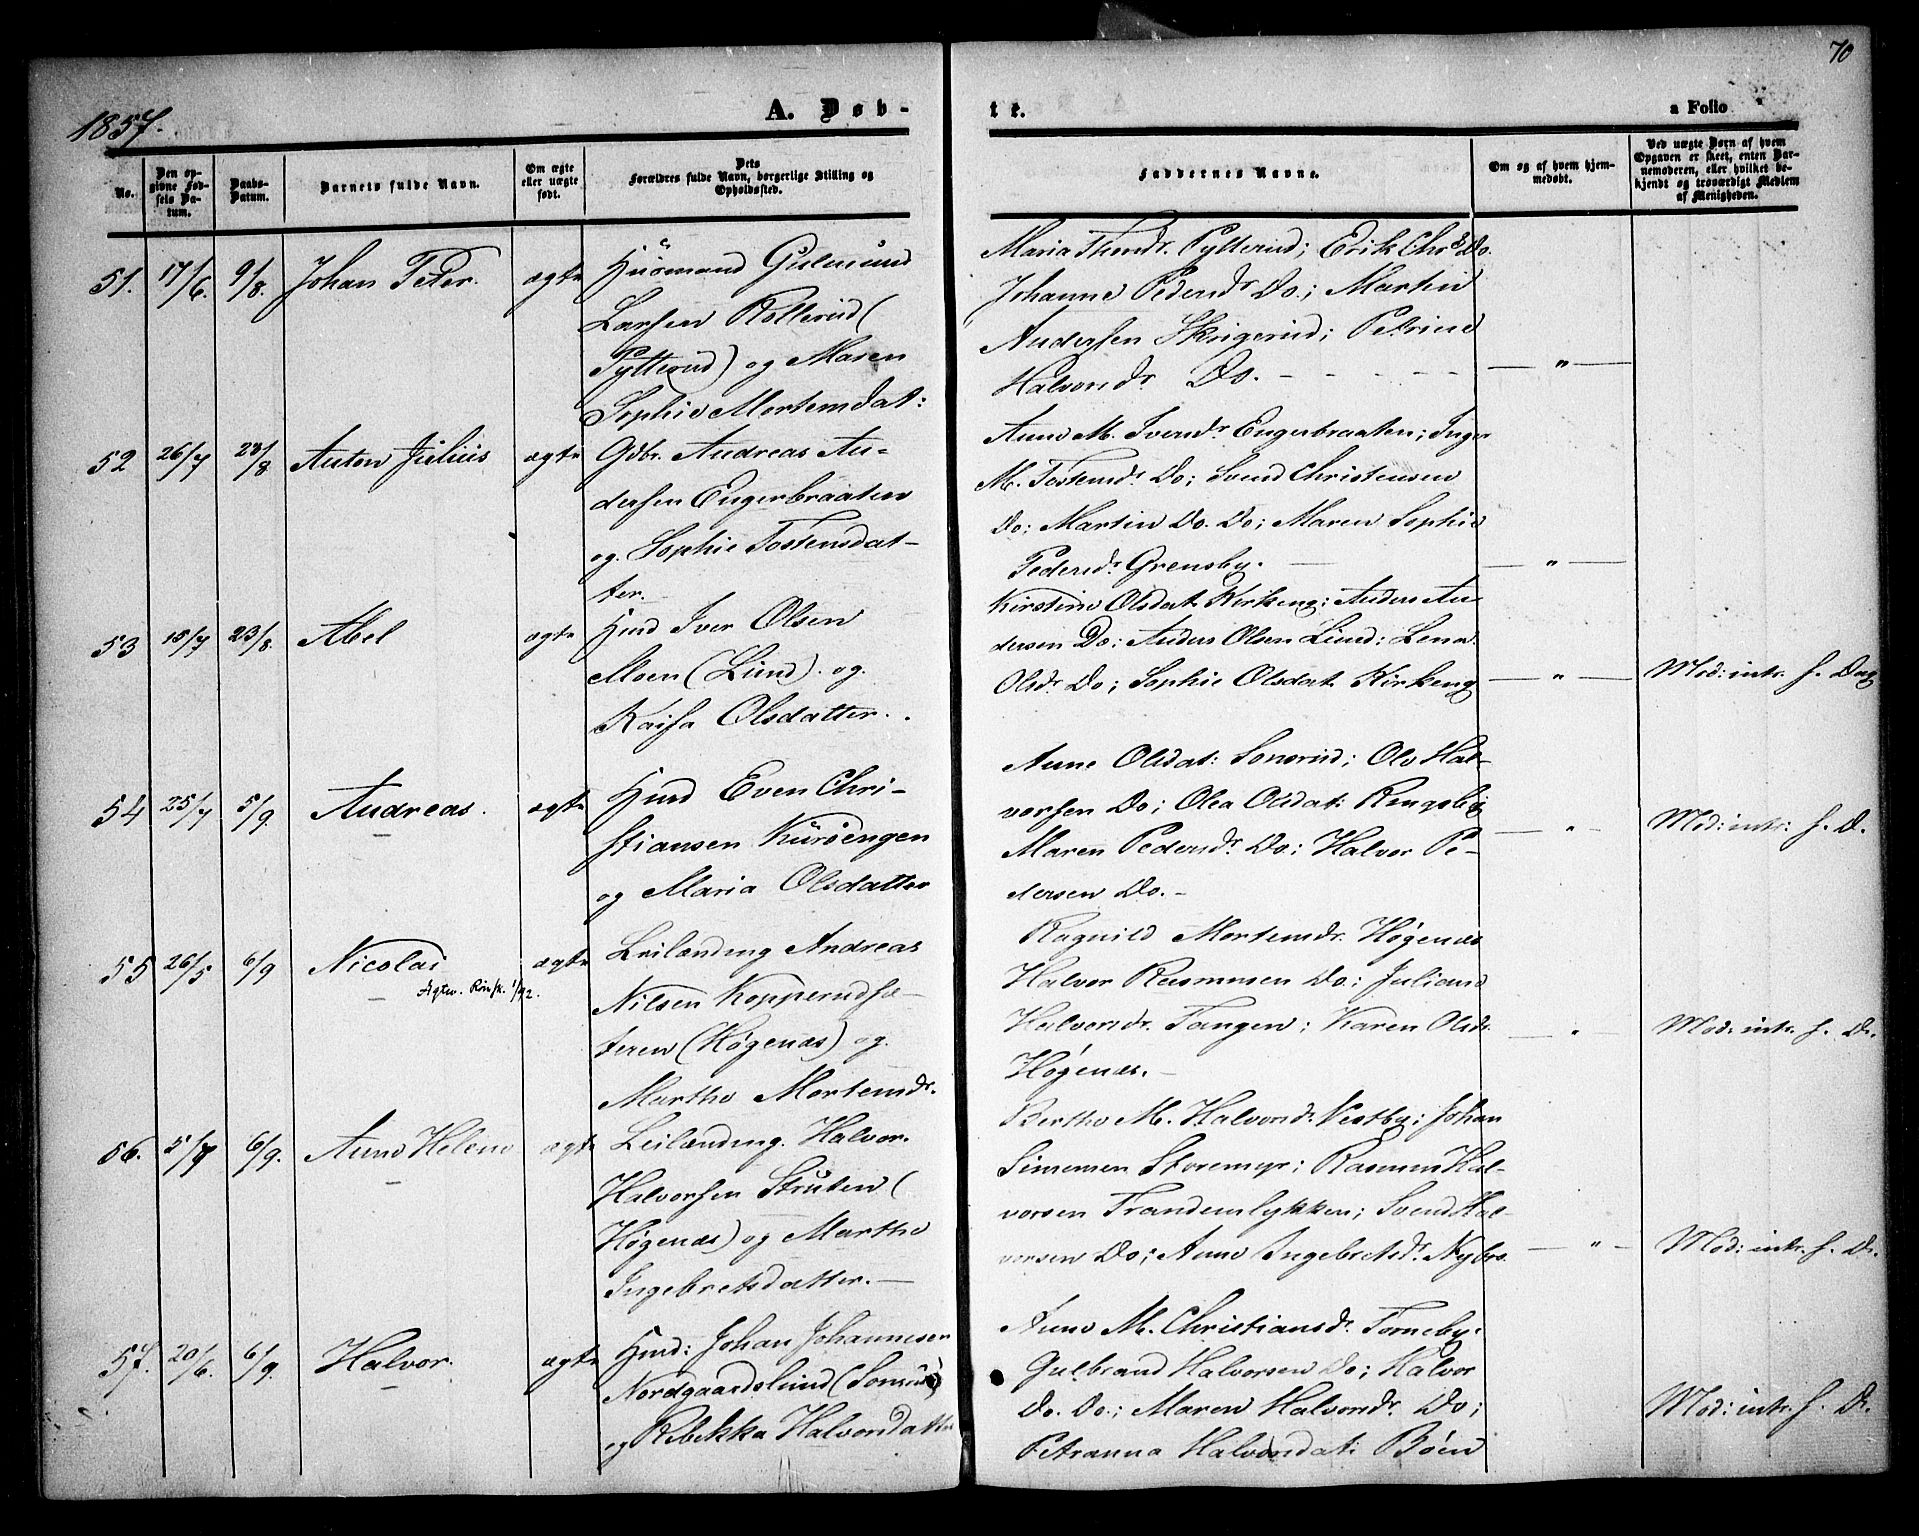 70
1857.
A. Døb-
te.
a Folio
No.
Den op-
givne Fød-
sels Da-
tum.
Daabs-
Datum.
Barnets fulde Navn.
Om ægte
eller uægte
født.
Dets
Forældres fulde Navn, borgerlige Stilling og
Opholdssted.
Faddernes Navne.
Om og af hvem hjem-
medøbt.
Ved uægte Børn af hvem
Opgaven er skeet, enten Bar-
nemoderen, eller hvilket be-
kjendt og troværdigt Medlem
af Menigheden.
51. 17/6. 9/8. Johan Peter. ægte
Huusmand Gulmund
Larsen Kollerud (
Pytterud) og Maren
Sophie Mortensdat:
Maria Pytterud; Erik Do.
Johanne Pedersdr Do.; Martin
Andersen Skrigerud; Petrine
Halvorsdr Do. - - - - -
— " —
52 26/7 23/8 Anton Julius ægte
Gdbr. Andreas An-
dersen Engerbraaten
og Sophie Tostensdat-
ter.
Anne M. Iversdr Engerbraaten; Inger
M. Tostensdr Do; Svend Christensen
Do; Martin Do. Do; Maren Sophie
Pedersdr Grensby.
— " —
53 15/7 23/8. Abel ægte
Hmd Iver Olsen
Moen (Lund). og
Kaisa Olsdatter.
Kirstine Olsdat Kirkeng; Anders An-
dersen Do; Anders Olsen Lund; Lena
Olsdr Do; Sophie Olsdat Kirkeng
— " —
Mod: intr. s. Dag
54 25/7 5/9. Andreas. ægte
Hmd Even Chri-
stiansen Kurøengen
og Maria Olsdatter
Anne Olsdat: Sonerud; Ole Hal-
vorsen Do; Olea Olsdat: Ringsby
Maren Pedersdr Do; Halvor Pe-
dersen Do. -
— " —
Mod: intr: s. D.
55 26/5 6/9 Nicolai ægte
Leilænding Andreas
Nilsen Kopperudsæ-
teren (Høgenæs) og
Marthe Mortensdr.
Ragnild Mortensdr. Høgenæs
Halvor Rasmussen Do; Juliane
Halvorsdr. Tangen; Karen Olsdr.
Høgenæs. -
— " —
Mod: intr. s. D.
56. 5/7 6/9. Anne Helene ægte
Leilænding. Halvor.
Halvorsen Struten (
Høgenæs) og Marthe
Ingebretsdatter. —
Berthe M. Halvorsdr. Vestby; Johan
Simensen Storemyr; Rasmus Hal-
vorsen Trandemlykken; Svend Hal-
vorsen Do; Anne Ingebretsdr. Nybro.
— " —
Mod: intr. s. D.
57. 20/6. 6/9. Halvor. ægte
Hmd: Johan Johannesen
Nordgaardslund
og Rebekka Halvorsdatter
Anne M. Christiansdr. Torneby;
Gulbrand Halvorsen Do; Halvor
Do. Do.; Maren Halvorsdr. Do;
Petranna Halvorsdat: Bøen
Mod: intr. s. D.